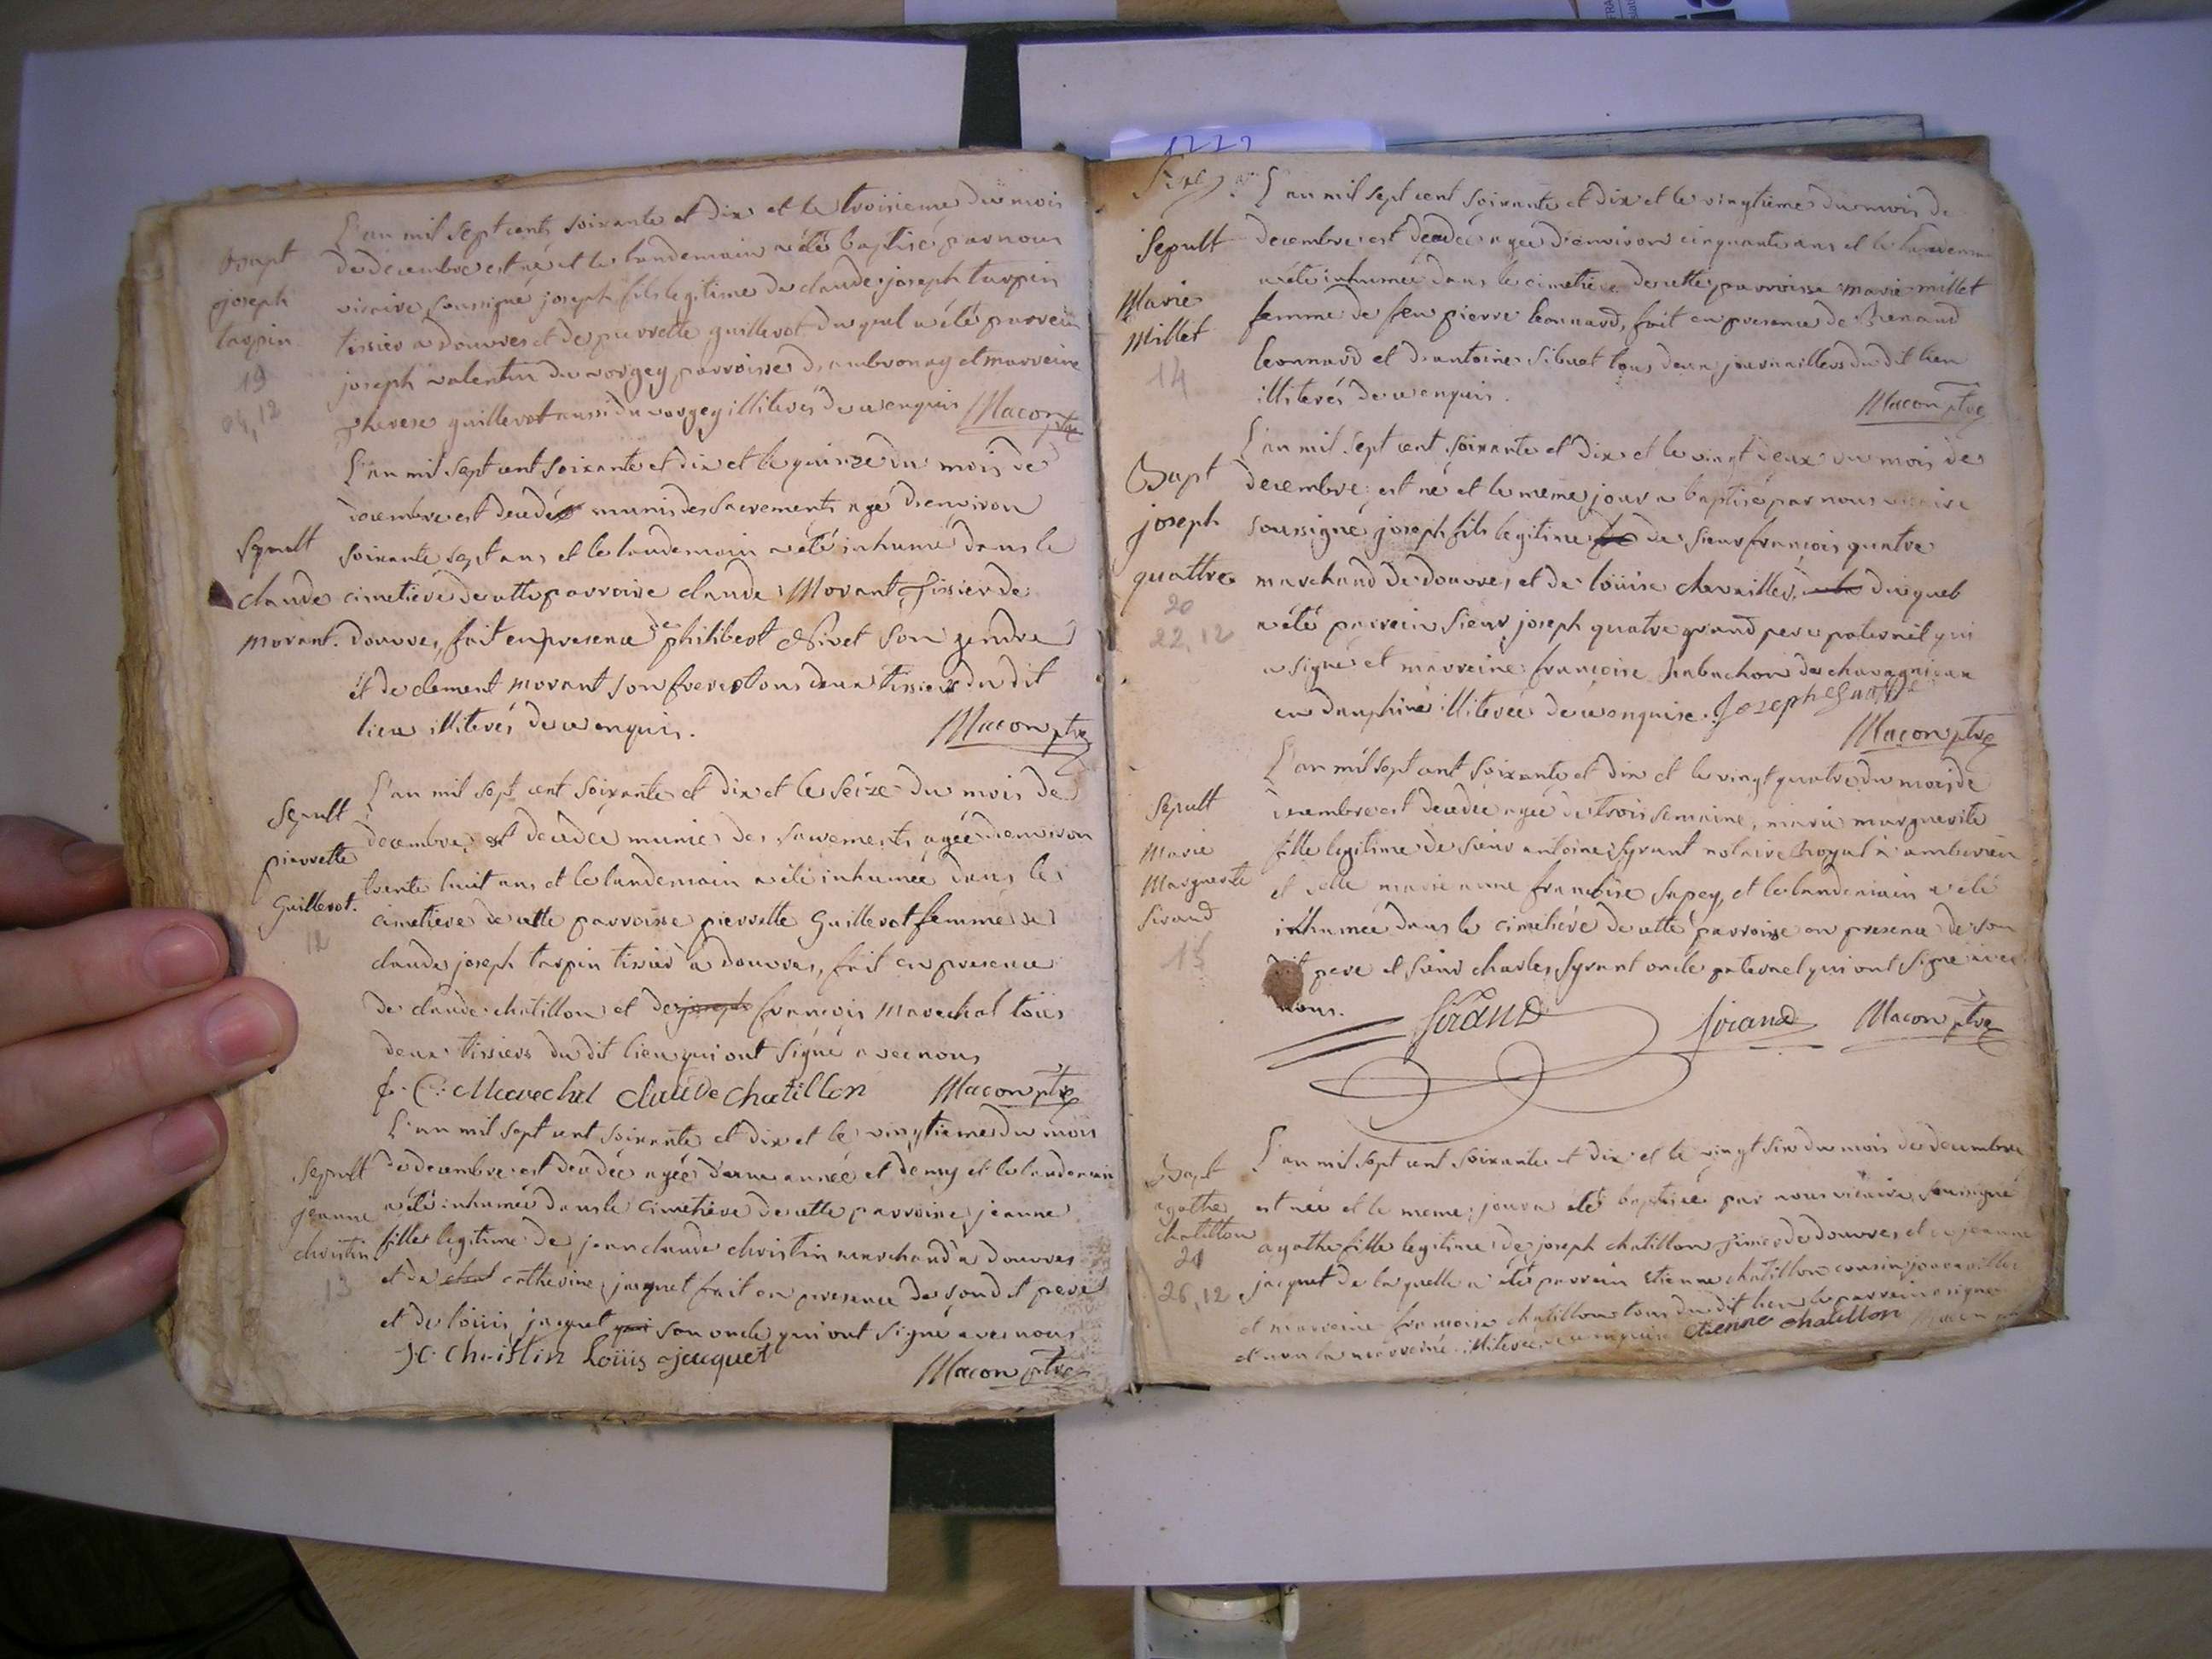 Bapt
joseph
tarpin
19
04,12
L'an mil sept cents soixante et dix et le troisieme du mois
de decembre est né et le landemain a été baptisé par nous
vicaire soussigné joseph fils legitime de claude joseph tarpin
tissier a douvres et de pierrette guillerot duquel a été parrein
joseph valentin du vorgey parroisse d'ambronay et marreine
therese guillerot aussi du vorgey illiterés de ce enquis Macon ptre
Sepult
claude
morant.
L'an mil sept cent soixante et dix et le quinze du mois de
decembre est decedé munis des sacrements agé d'environ
soixante sept ans et le landemain a été inhumé dans le
cimetiere de cette parroisse claude Morant tissier de
douvres, fait en presence de philibert Nivet son gendre
et de clement morant son frere tous deux tissiers du dit
lieu illiterés de ce enquis.
Macon ptre
Sepult
pierrette
Guillerot.
12
L'an mil sept cent soixante et dix et le seize du mois de
decembre est decedée munie des sacrements agée d'environ
trente huit ans et le landemain a été inhumée dans le
cimetiere de cette parroisse pierrette Guillerot femme de
claude joseph tarpin tissier a douvres, fait en presence
de claude chatillon et de joseph françois Marechal tous
deux tissiers du dit lieu qui ont signé avec nous
f. C. Marechel claude chatillon Macon ptre
Sepult
jeanne
christin
13
L'an mil sept cent soixante et dix et le vingtieme du mois
de decembre est decedée agée d'une année et demy et le landemain
a été inhumée dans le cimetiere de cette parroisse jeanne
fille legitime de jean claude christin marchand a douvres
et de catherine jaquet fait en presence de son dit pere
et de loüis jacquet qui son oncle qui ont signé avec nous
JC christin Loüis jacquet
Macon ptre
Sepult
Marie
Millet
14
L'an mil sept cent soixante et dix et le vingtieme du mois de
decembre est decedée agée d'environ cinquante ans et le landemain
a été inhumée dans le cimetiere de cette parroisse marie millet
femme de feu pierre leonnard, fait en presence de Benaud
leonnard et d'antoine sibuet tous deux journailliers du dit lieu
illiterés de ce enquis.
Macon ptre
Bapt
joseph
quattre
20
22,12
L'an mil sept cent soixante et dix et le vingt deux du mois de
decembre est né et le meme jour a baptisé par nous vicaire
soussigné joseph fils legitime de sieur françois quatre
marchand de douvres, et de loüise chevaillier, duquel
a été parrein sieur joseph quatre grand pere paternel qui
a signé et marreine françoise rabuchon de chavagnieux
en dauphiné illiterée de ce enquise. Joseph Quatre
Macon ptre
Sepult
Marie
Marguerite
Sirand
15
L'an mil sept cent soixante et dix et le vingt quatre du mois de
decembre est decedée agée de trois semaine, marie marguerite
fille legitime de sieur antoine syrant notaire royal a amberieu
et delle marie anne françoise sapey, et le landemain a été
inhumée dans le cimetiere de cette parroisse en presence de son
dit pere et sieur charles syrant oncle paternel qui ont signé avec
nous.
Sirand sirand Macon ptre
Bapt
agathe
chatillon
21
26,12
L'an mil sept cent soixante et dix et le vingt six du mois de decembre
est née et le meme jour a été baptisée par nous vicaire soussigné
agathe fille legitime de joseph chatillon tissier de douvres, et de jeanne
jacquet de laquelle a été parrein etienne chatillon cousin journaillier
et marreine françoise chatillon tous du dit lieu le parrein a signé
et non la marreine illiterée de ce enquise etienne chatillon Macon ptre